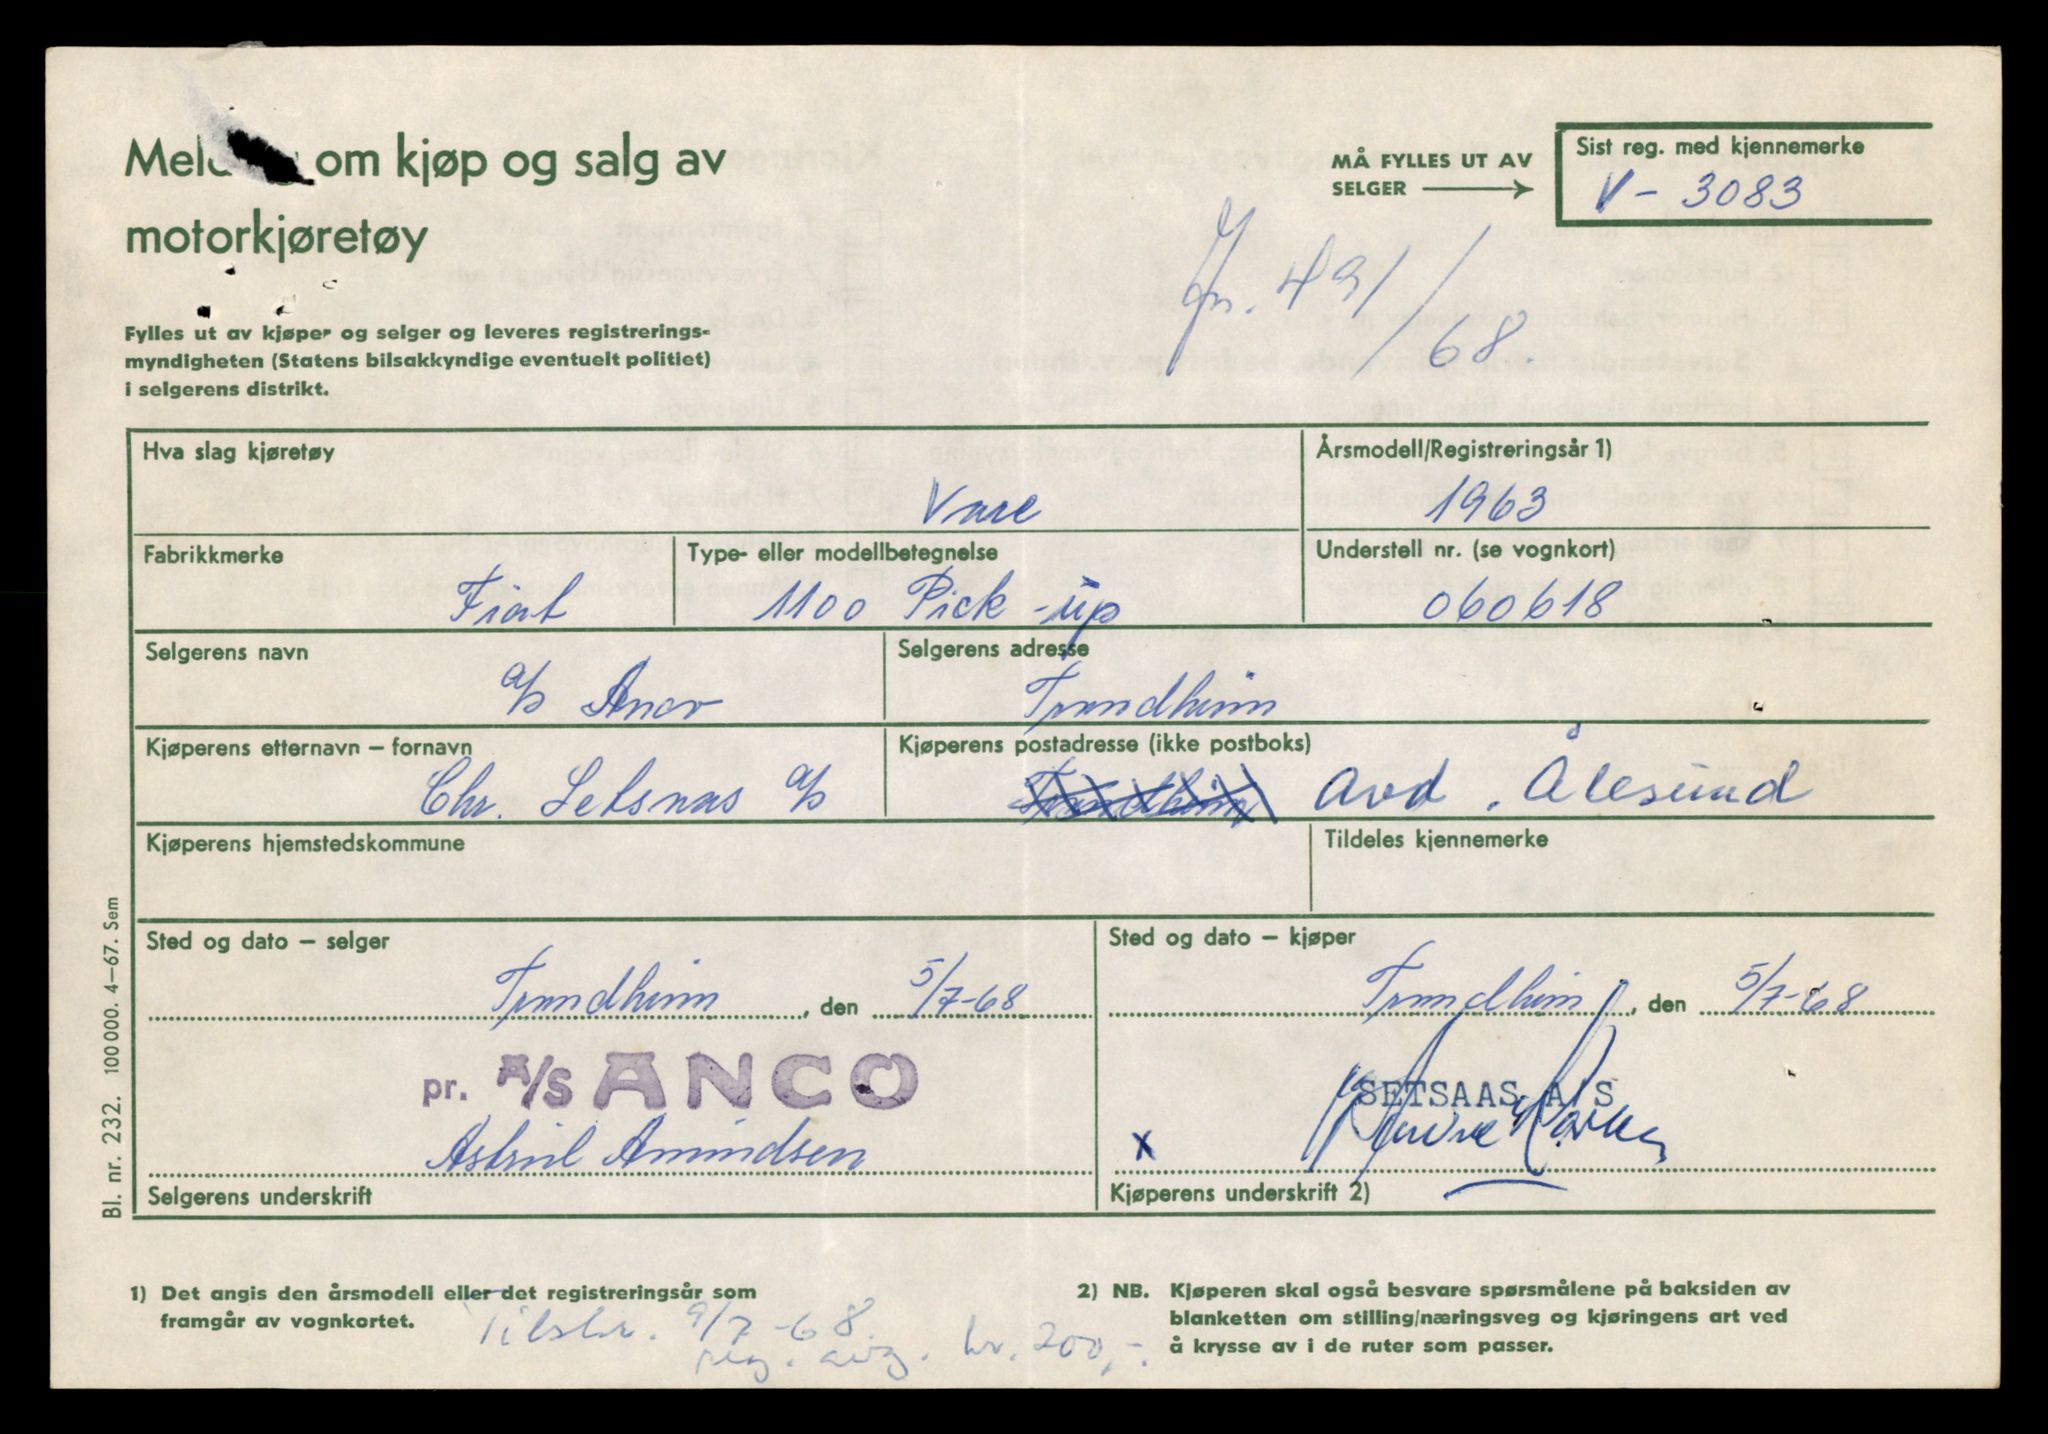 Meld om kjøp og salg av
motorkjøretøy
MÅ FYLLES UT AV
SELGER
Sist reg. med kjennemerke
V- 3083
Jn. 491/68.
Fylles ut av kjøper og selger og leveres registrerings-
myndigheten (Statens bilsakkyndige eventuelt politiet)
i selgerens distrikt.
Hva slag kjøretøy
Vare
Årsmodell/Registreringsår 1)
1963
Fabrikkmerke
Fiat
Type- eller modellbetegnelse
1100 Pick-up
Understell nr. (se vognkort)
060618
Selgerens navn
a/s Anco
Selgerens adresse
Trondheim
Kjøperens etternavn – fornavn
Chr. Setsaas a/s
Kjøperens postadresse (ikke postboks)
Trondheim Avd. Ålesund
Kjøperens hjemstedskommune
Tildeles kjennemerke
Sted og dato – selger
Trondheim, den 5/7-68
Sted og dato – kjøper
Trondheim, den 5/7-68
pr. A/S ANCO
Amundsen
SETSAAS A/S
x
Selgerens underskrift
Kjøperens underskrift 2)
Bl. nr. 232. 100 000. 4–67. Sem
1) Det angis den årsmodell eller det registreringsår som
framgår av vognkortet.
2) NB. Kjøperen skal også besvare spørsmålene på baksiden av
blanketten om stilling/næringsveg og kjøringens art ved
å krysse av i de ruter som passer.
9/7-68.
reg. avg. kr. 200,-.